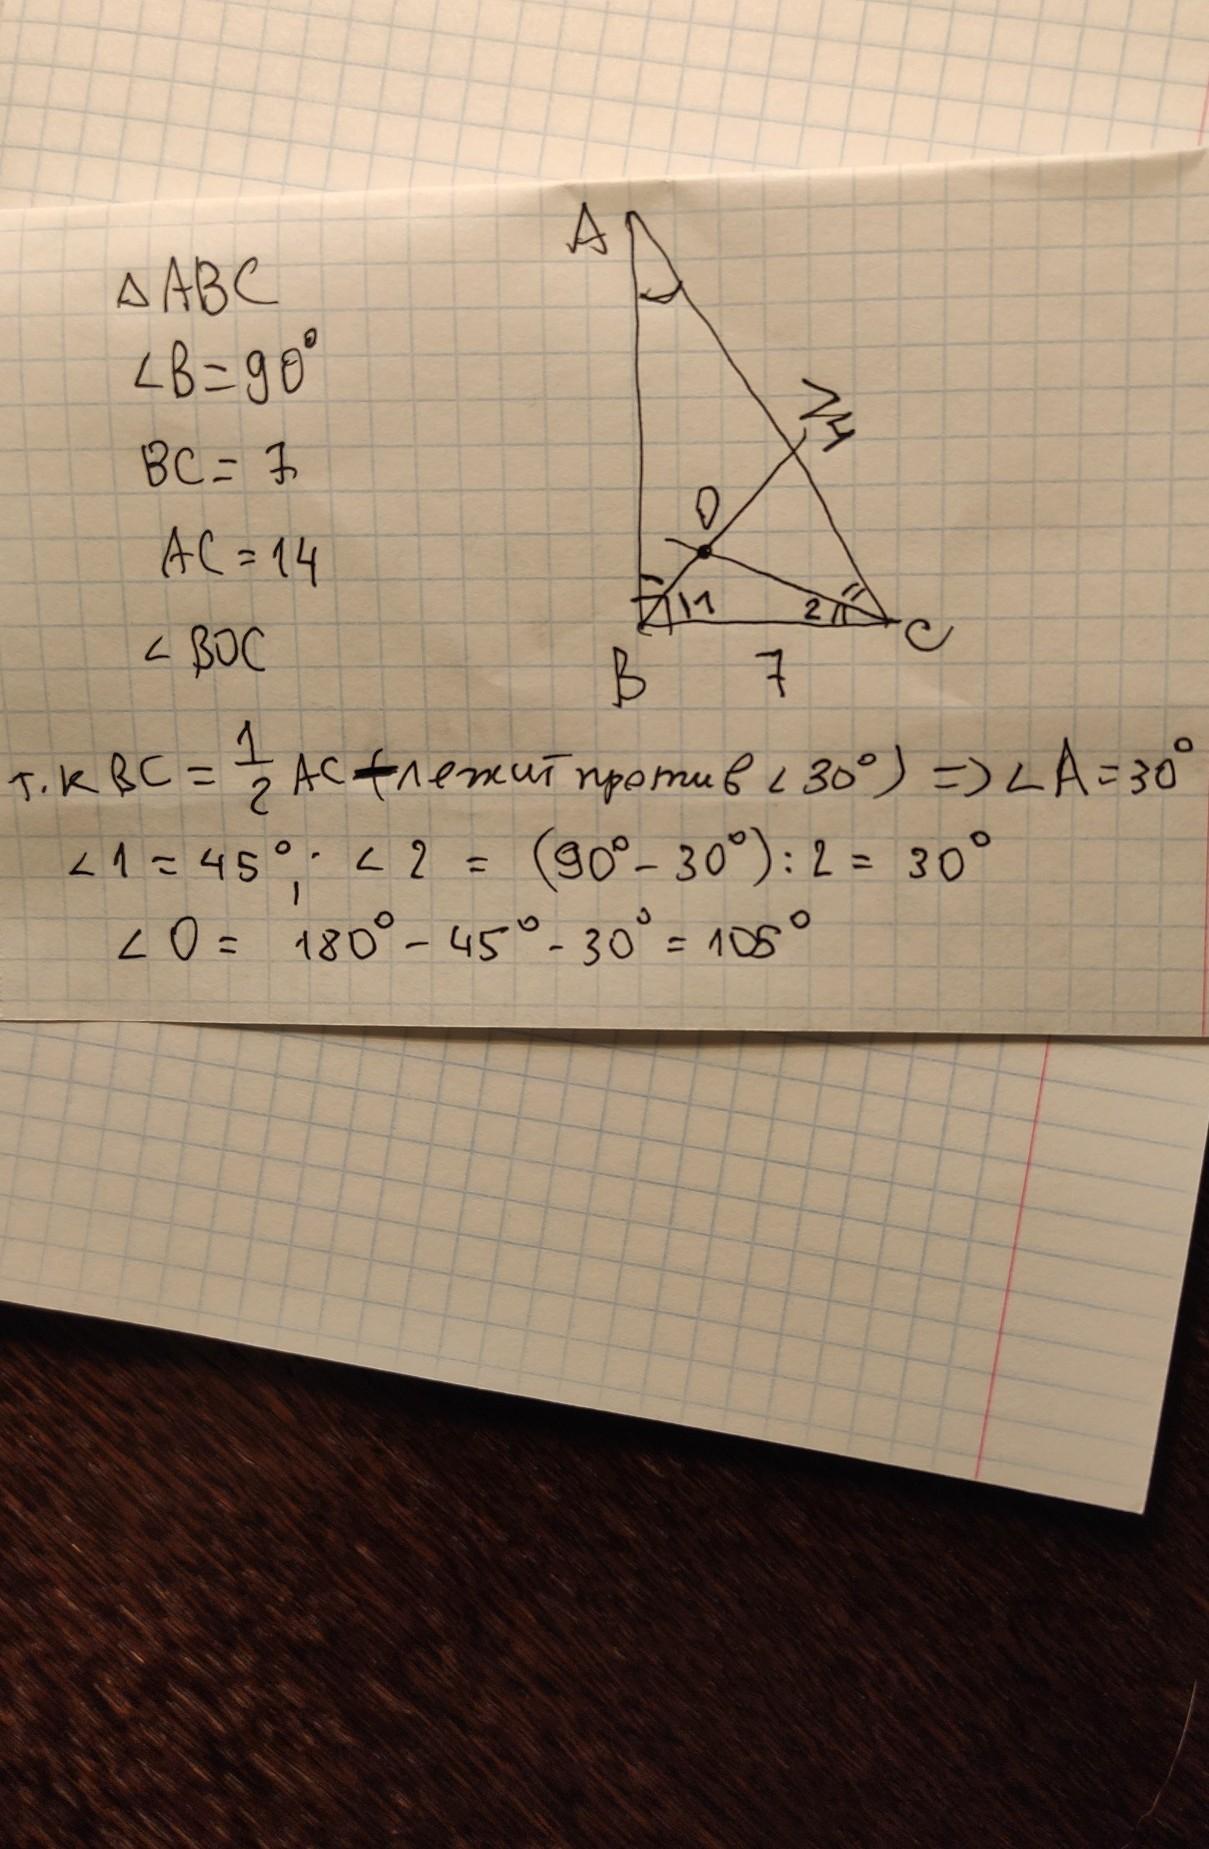 △ABC
∠B=90°
BC=7
AC=14
∠BOC
A
14
O
1
2
B
7
C
т.к BC = 1/2 AC (лежит против ∠30°) => ∠A=30°
∠1=45°; ∠2 = (90°-30°):2= 30°
∠O= 180°-45°-30°=105°